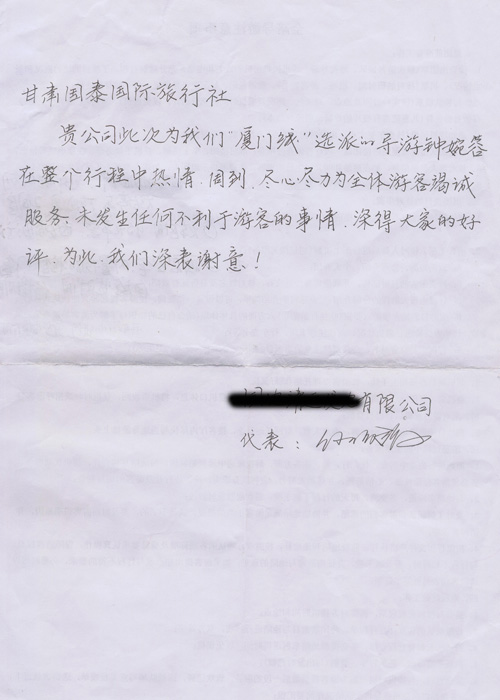 甘肃国泰国际旅行社
贵公司此次为我们“厦门线”选派的导游钟婉蓉
在整个行程中热情、周到、尽心尽力为全体游客竭诚
服务、未发生任何不利于游客的事情、深得大家的好
评、为此、我们深表谢意！
有限公司
代表：